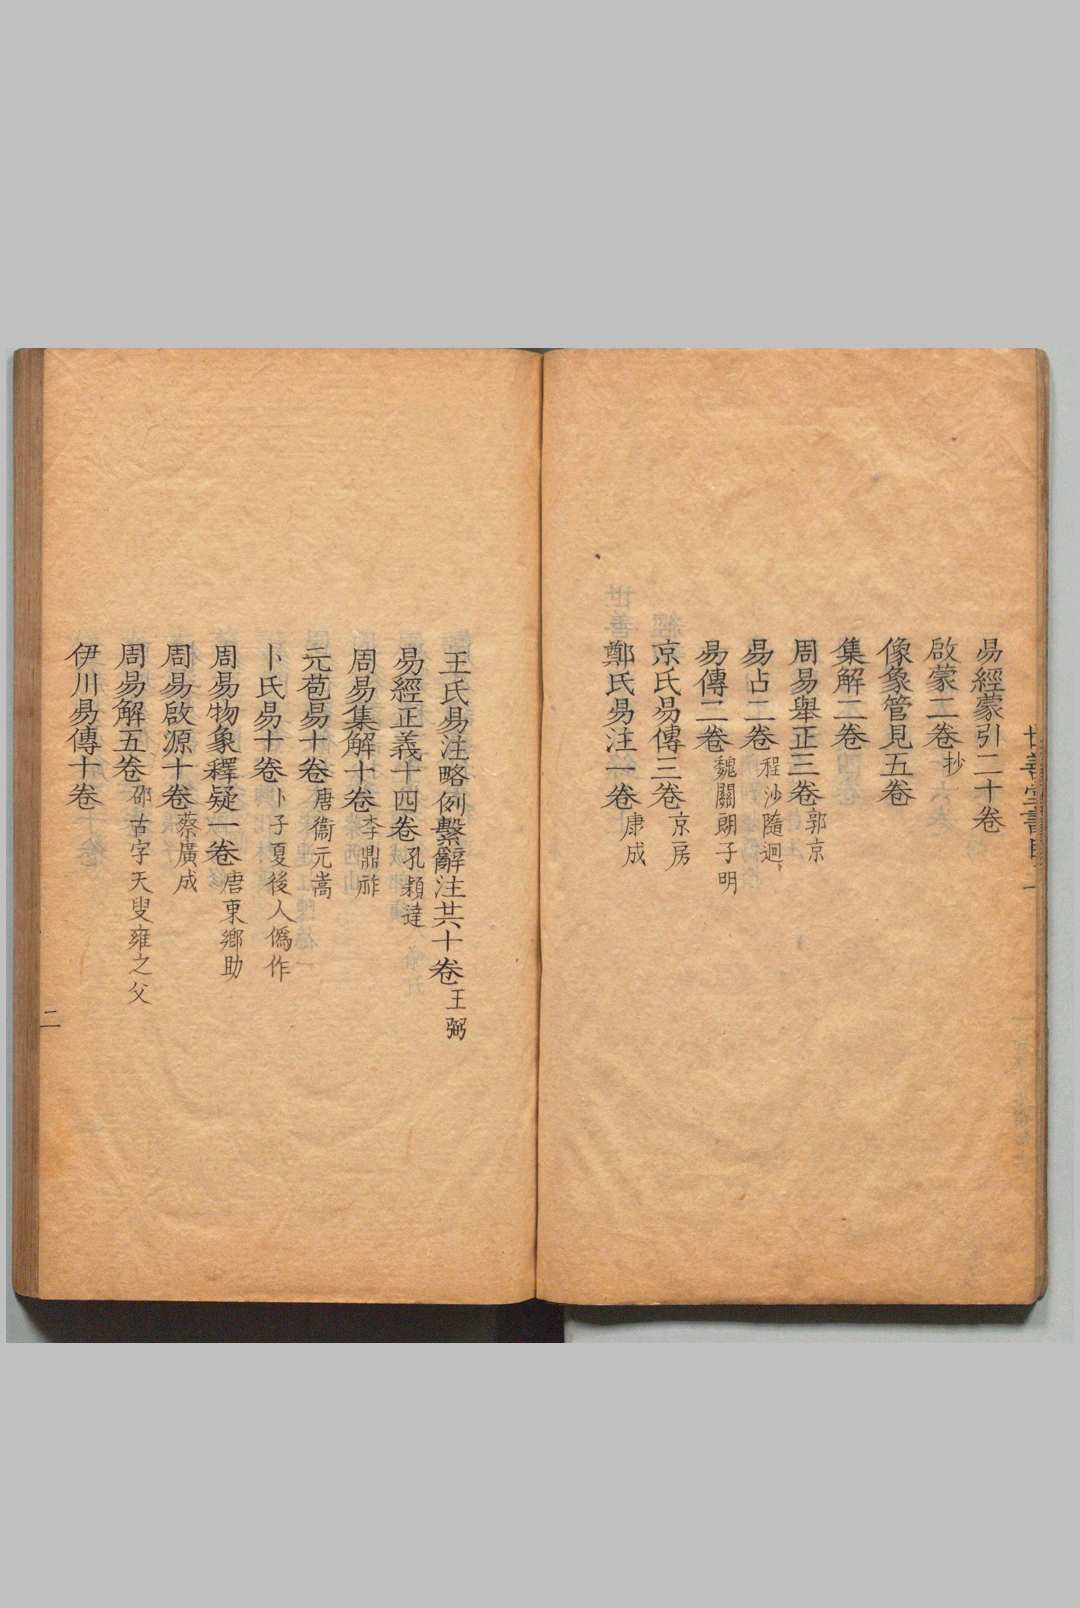 世善堂書目
易經蒙引二十卷
啟蒙二卷抄
像象管見五卷
集解二卷
周易舉正三卷郭京
易占二卷程沙隨迥
易傳二卷魏關朗子明
京氏易傳三卷京房
鄭氏易注一卷康成
王氏易注略例繫辭注共十卷王弼
易經正義十四卷孔頴達
周易集解十卷李鼎祚
元苞易十卷唐衞元嵩
卜氏易十卷卜子夏後人僞作
周易物象釋疑一卷唐東鄉助
周易啟源十卷蔡廣成
周易解五卷邵古字天叟雍之父
伊川易傳十卷
二